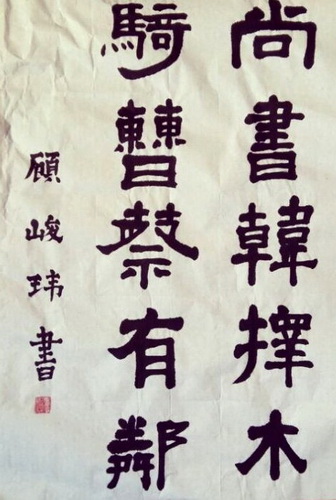 尚書韓擇木
騎曹蔡有鄰
顧峻瑋書